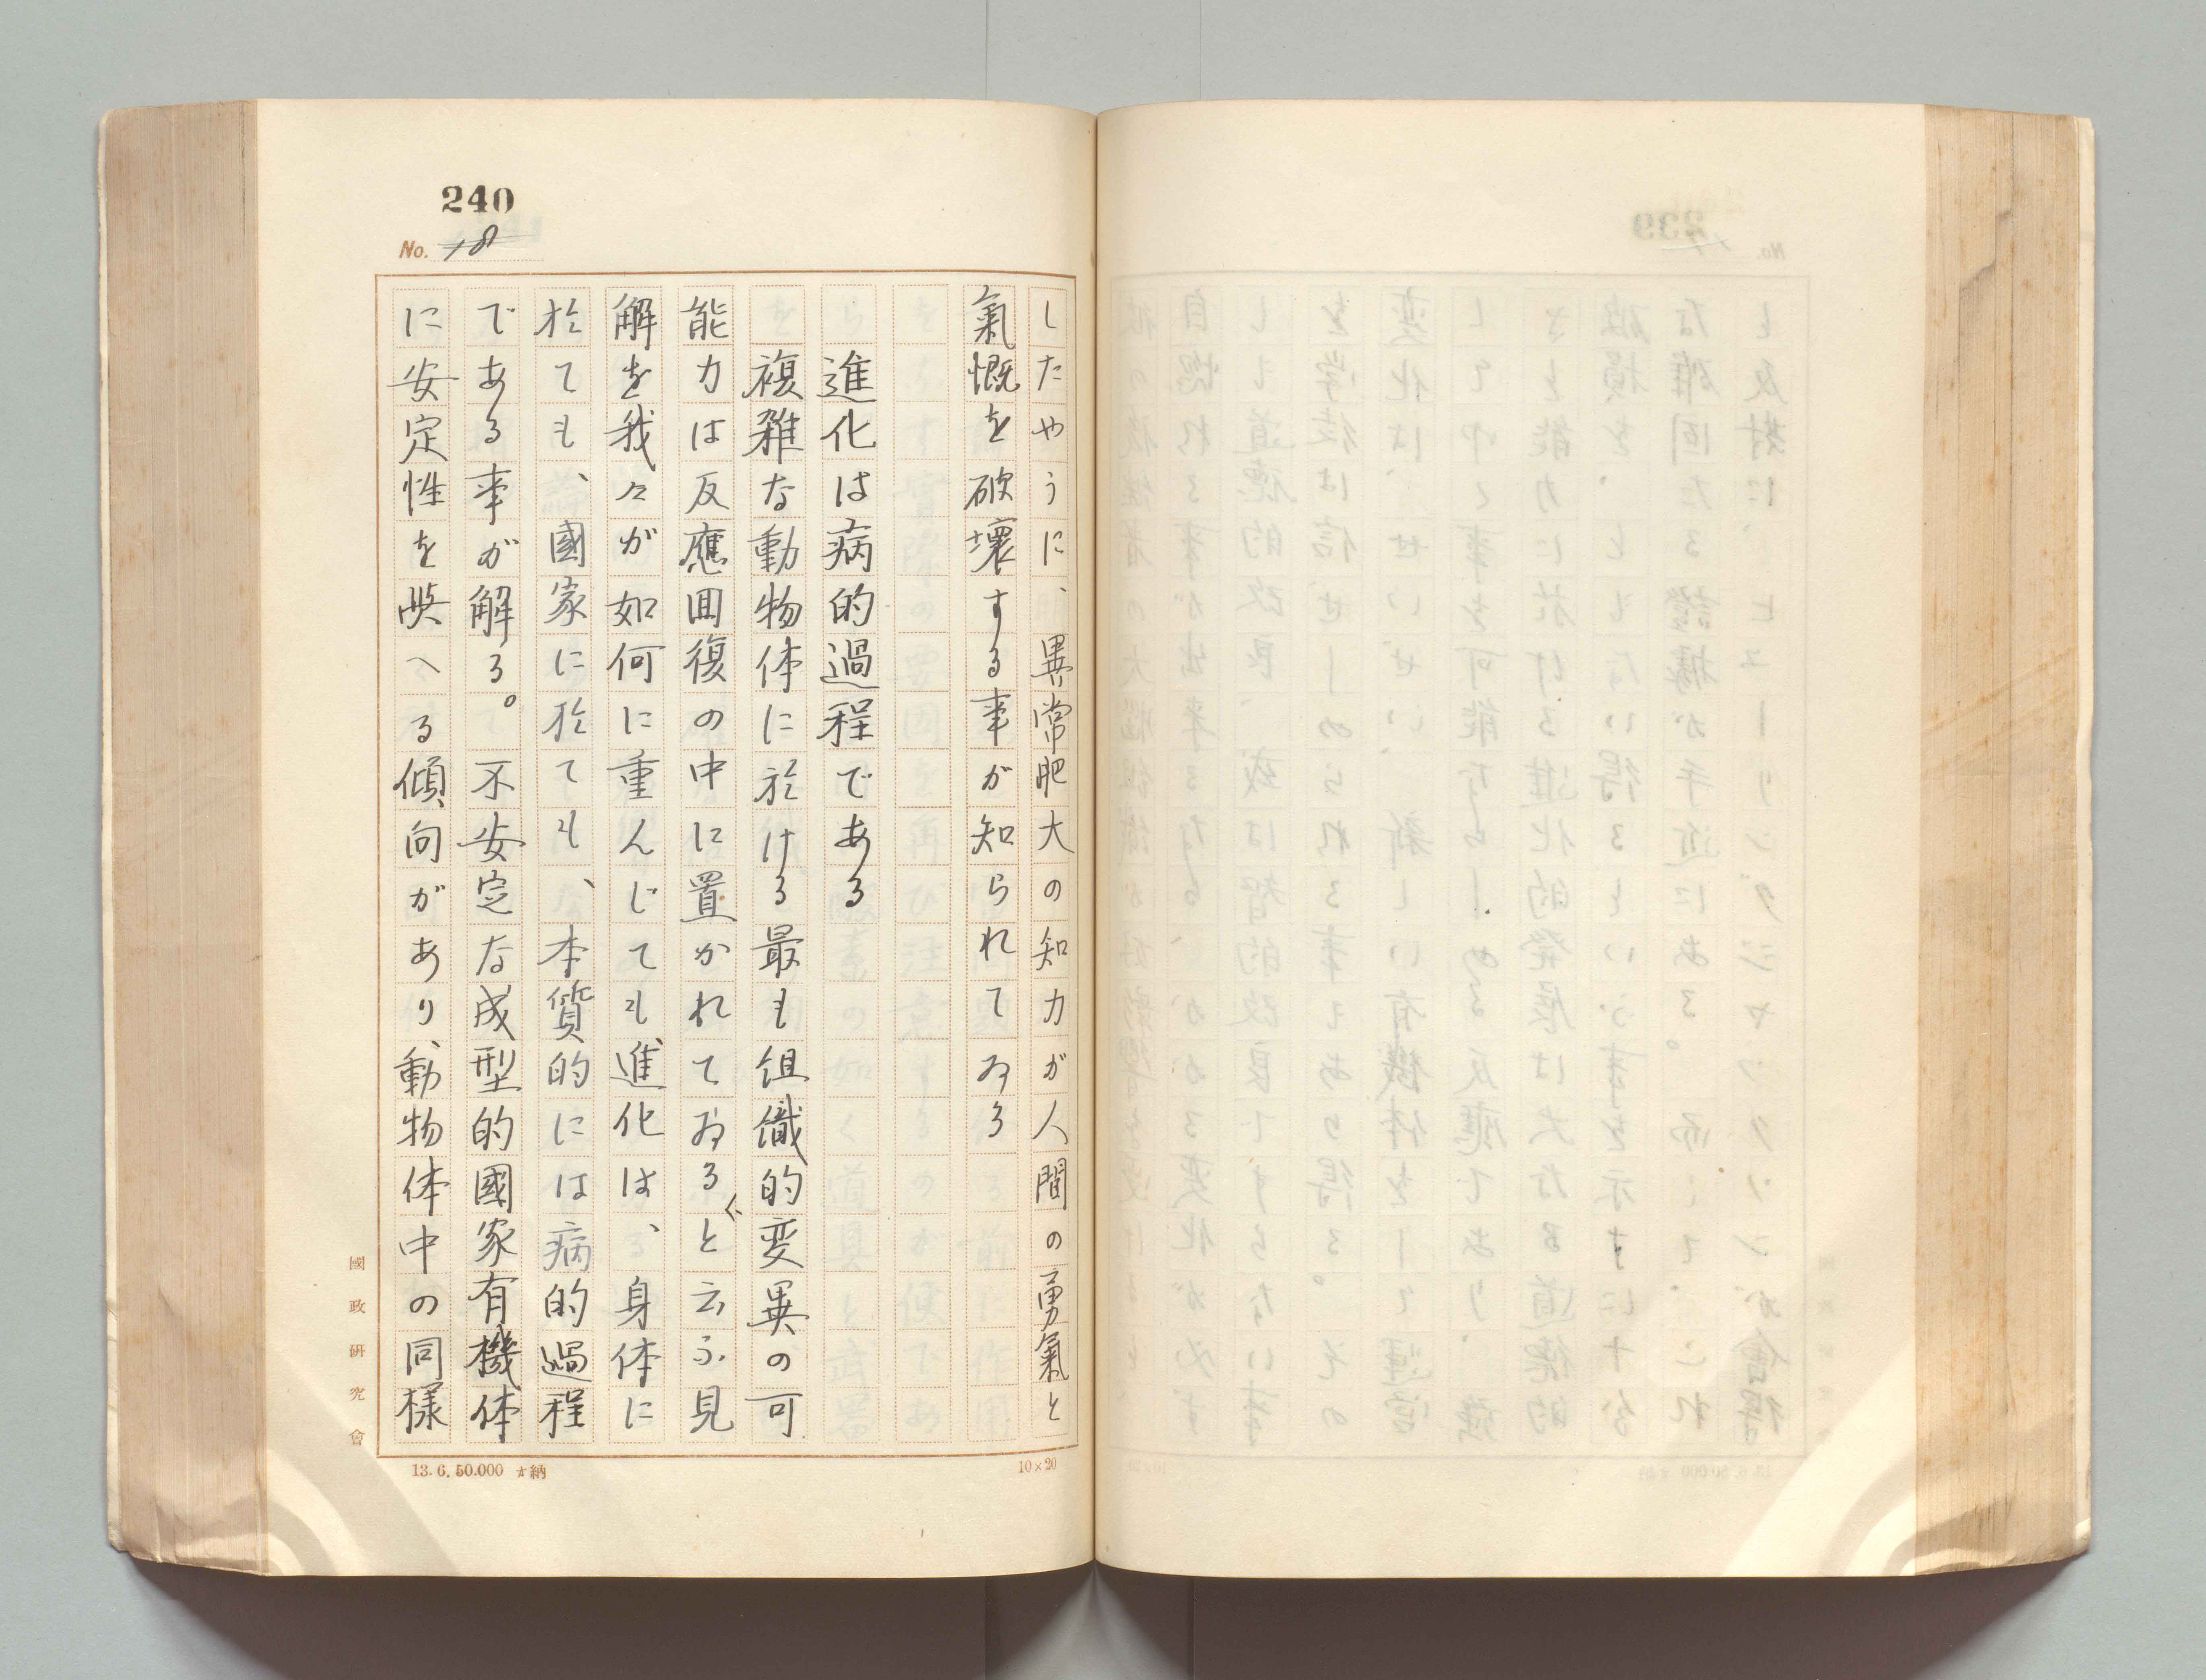 240
No. 18
したやうに、異常肥大の知力が人間の勇氣と
氣慨を破壞する事が知られてゐる
進化は病的過程である
複雑な動物体に於ける最も組織的変異の可
能力は反應囬復の中に置かれてゐるぐと云ふ見
解を我々が如何に重んじても、進化は、身体に
於ても、國家に於ても、本質的には病的過程
である事が解る。不安定な成型的國家有機体
に安定性を與へる傾向があり、動物体中の同様
國政研究會
13.6.50.000 才納
10×20